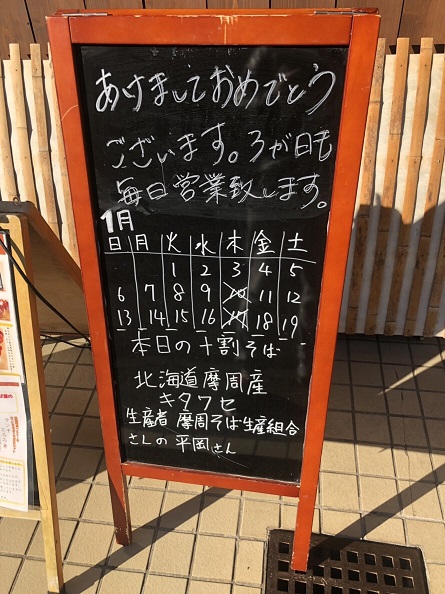 あけましておめでとう
ございます。3が日も
毎日営業致します。
1月
日 月 火 水 木 金 土
1 2 3 4 5
6 7 8 9 10 11 12
13 14 15 16 17 18 19
本日の十割そば
北海道摩周産
キタワセ
生産者 摩周そば生産組合
さんの平岡さん